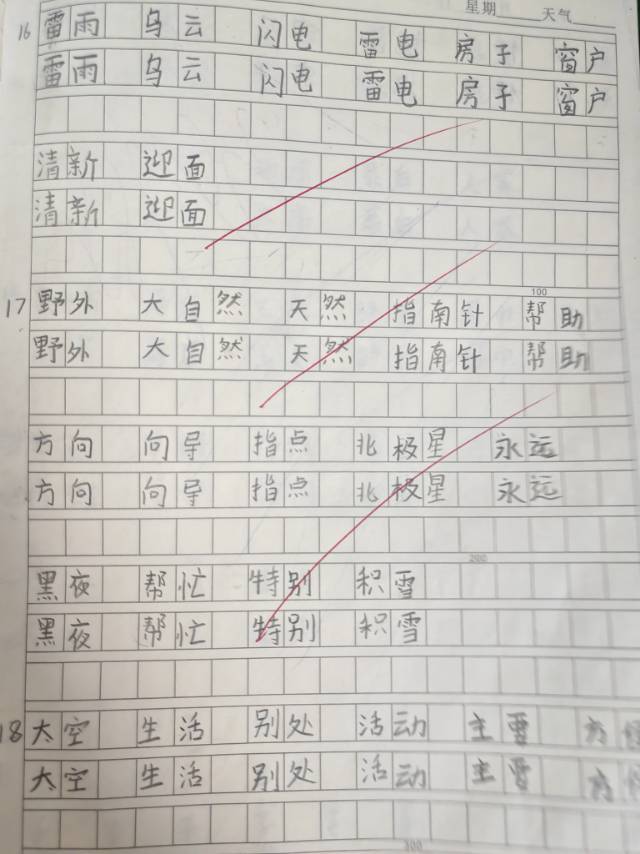 星期 天气
16 雷雨 乌云 闪电 雷电 房子 窗户
雷雨 乌云 闪电 雷电 房子 窗户
清新 迎面
清新 迎面
100
17 野外 大自然 天然 指南针 帮助
野外 大自然 天然 指南针 帮助
方向 向导 指点 北极星 永远
方向 向导 指点 北极星 永远
200
黑夜 帮忙 特别 积雪
黑夜 帮忙 特别 积雪
18 太空 生活 别处 活动 主要 方便
太空 生活 别处 活动 主要 方便
300